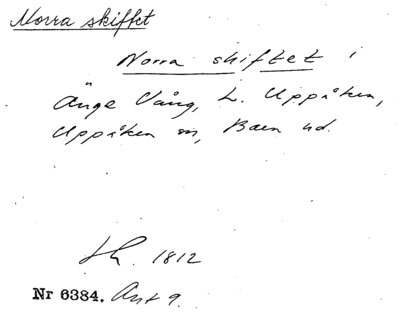 Norra skiftet
Norra skiftet i
Änge Vång, L. Uppåkra,
Uppåkra sn, Bara hd.
Lh. 1812
Nr 6384. Akt 9.